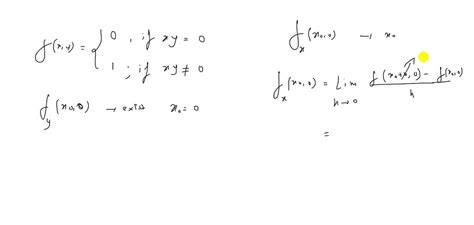 f(x,y) = { 0 , if xy = 0
1 ; if xy ≠ 0
f_y (x₀,0) → exists x₀ = 0
f_x (x₀,0) → x₀
f_x (x₀,0) = Lim h→0 f(x₀+h,0) - f(x₀,0) / h
=